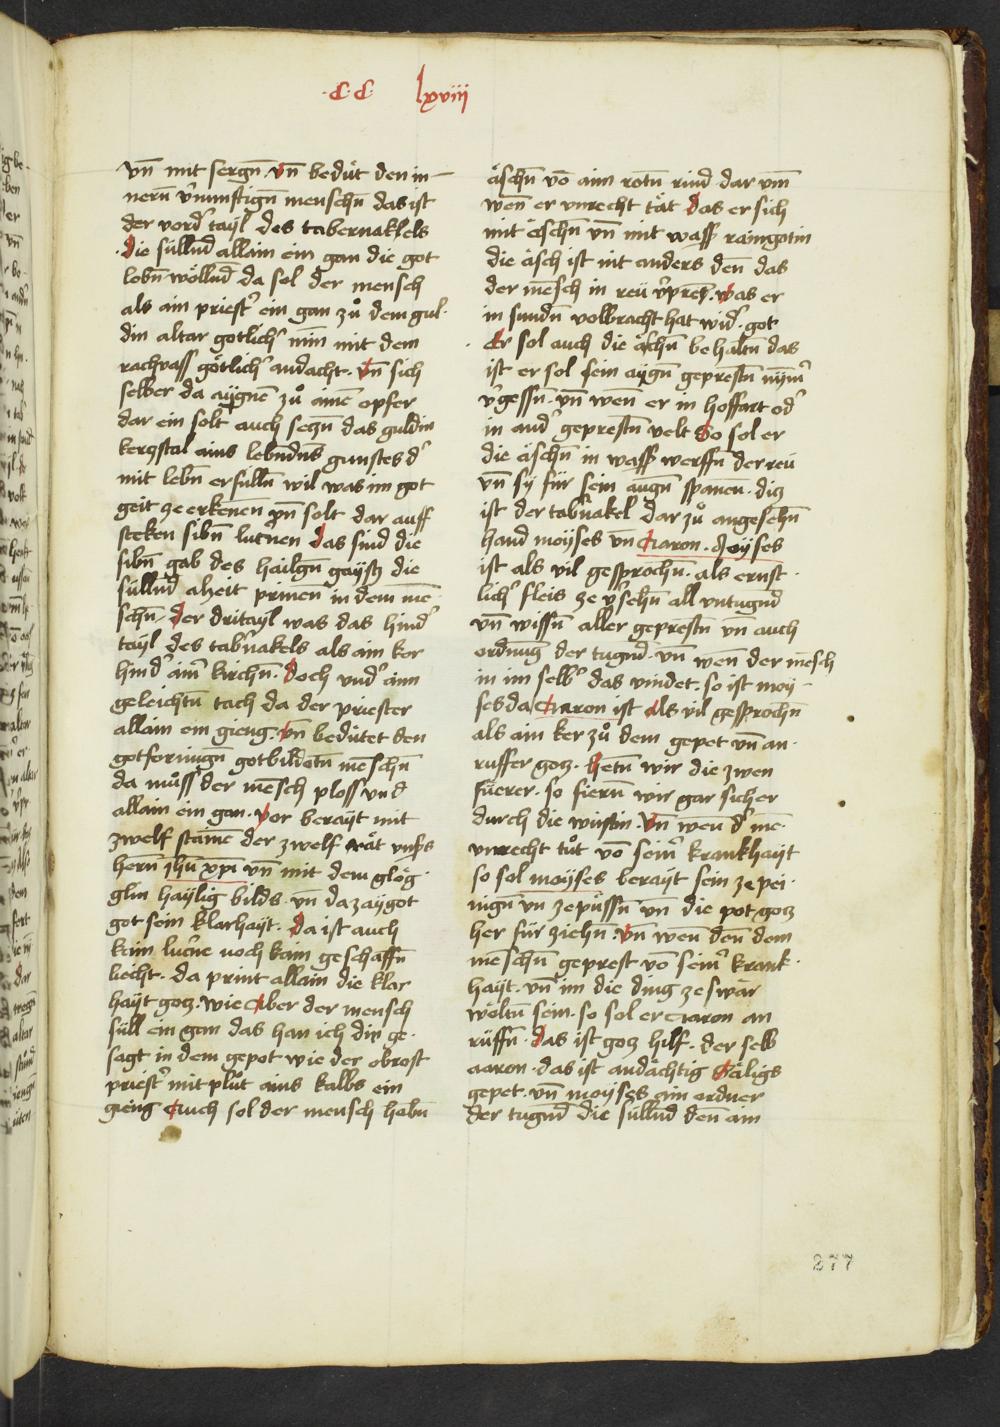 ·C·C· lxviii
vn̄ mit sergn̄ vn̄ bedüt den in-
nern̄ v̾nunftign̄ menschn̄ das ist
der vord̾ tayl des tabernakels
Die süllnd̄ allain ein gan die got
lebn̄ wöllnd̄ da sol der mensch
als ain priest̾ ein gan zuͦ dem gul-
din altar gotlich̾ min̄ mit dem
rachvass götlich̾ andacht. Vn̄ sich
selber da aygnē zuͦ ainē opfer
dar ein solt auch seczn̄ das guldin
kerczstal ains lebndn̄s gunstes d̾
mit lebn̄ erfülln̄ wil was im got
geit ze erkenēn vn̄ solt dar auff
steken sibn̄ lucrnen Das sind die
sibn̄ gab des hailgn̄ gaystz die
süllnd̄ alzeit prinen in dem mē
schn̄. Der dritayl was das hind̾
tayl des tab̾nakels als ain kor
hind̾ aim̄ kirchn̄. Doch vnd̾ aim
geleichtn̄ tach da der priester
allain ein gieng. Vn̄ bedütet den
gotformign̄ gotbildetn̄ mēschn̄
da muͦss der mēsch ploss vnd
allain ein gan. Vor berayt mit
zwelf stamē der zwelf rät vnsers
hern̄ jhū xpī vn̄ mit dem glög-
glin haylig bilds. vn̄ da zaygot
got sein klarhayt. Da ist auch
kain luc̾ne noch kain geschaffn̄
liecht. da print allain die klar
hayt gotz. wie Aber der mensch
süll ein gan das han ich dir ge-
sagt in dem gepot wie der obrost
priest̾ mit pluͦt ains kalbs ein
gieng Auch sol der mensch habn̄
äschn̄ vō aim rotn̄ rind dar vm̄
wen̄ er vnrecht tät Das er sich
mit äschn̄ vn̄ mit wass̾ rainigotin
die äsch ist nit anders den̄ das
der mēsch in reü v̾pren. Was er
in sundn̄ volbracht hat wid̾ got
Er sol auch die äschn̄ behaltn̄ das
ist er sol sein aygn̄ geprestn̄ nym̄̾
v̾gessn̄. vn̄ wen̄ er in hoffart od̾
in and̾ geprestn̄ velt So sol er
die äschn̄ in wass̾ werffn̄ der reü
vn̄ sy für sein augn̄ spanen. diz
ist der tab̾nakel dar zuͦ angesehn̄
hand moyses vn Aaron. Moyses
ist als vil gesprochn̄. als ernst-
lich̾ fleis ze v̾sehn̄ all vntugnd̄
vn̄ wissn̄ aller geprestn̄ vn̄ auch
ordnug̅ der tugnd̄. vn̄ wen̄ der mēsch
in im selb̾ das vindet. so ist moy-
ses da Aaron ist Als vil gesprochn̄
als ain ker zuͦ dem gepet vn̄ an-
ruffer gotz. Hetn̄ wir die zwen
füerer. so fiern̄ wir gar sicher
durch die wüstin. Vn̄ wen̄ d̾ mē-
vnrecht tuͦt vō seim̾ krankhayt
so sol moyses berayt sein ze pei-
nign̄ vn ze püssn̄ vn̄ die pot gotz
her für ziehn̄. Vn̄ wen̄ den̄ dem
meschn̄ geprest vō seim̾ krank-
hayt. vn̄ im die ding ze swär
wöltn̄ sein. so sol er Aaron an
rüffn̄. Das ist gotz hilf. der selb
aaron. das ist andächtig Häligs
gepet. vn̄ moyses ain ordner
der tugnd̄ die sullnd̄ den̄ ain
277